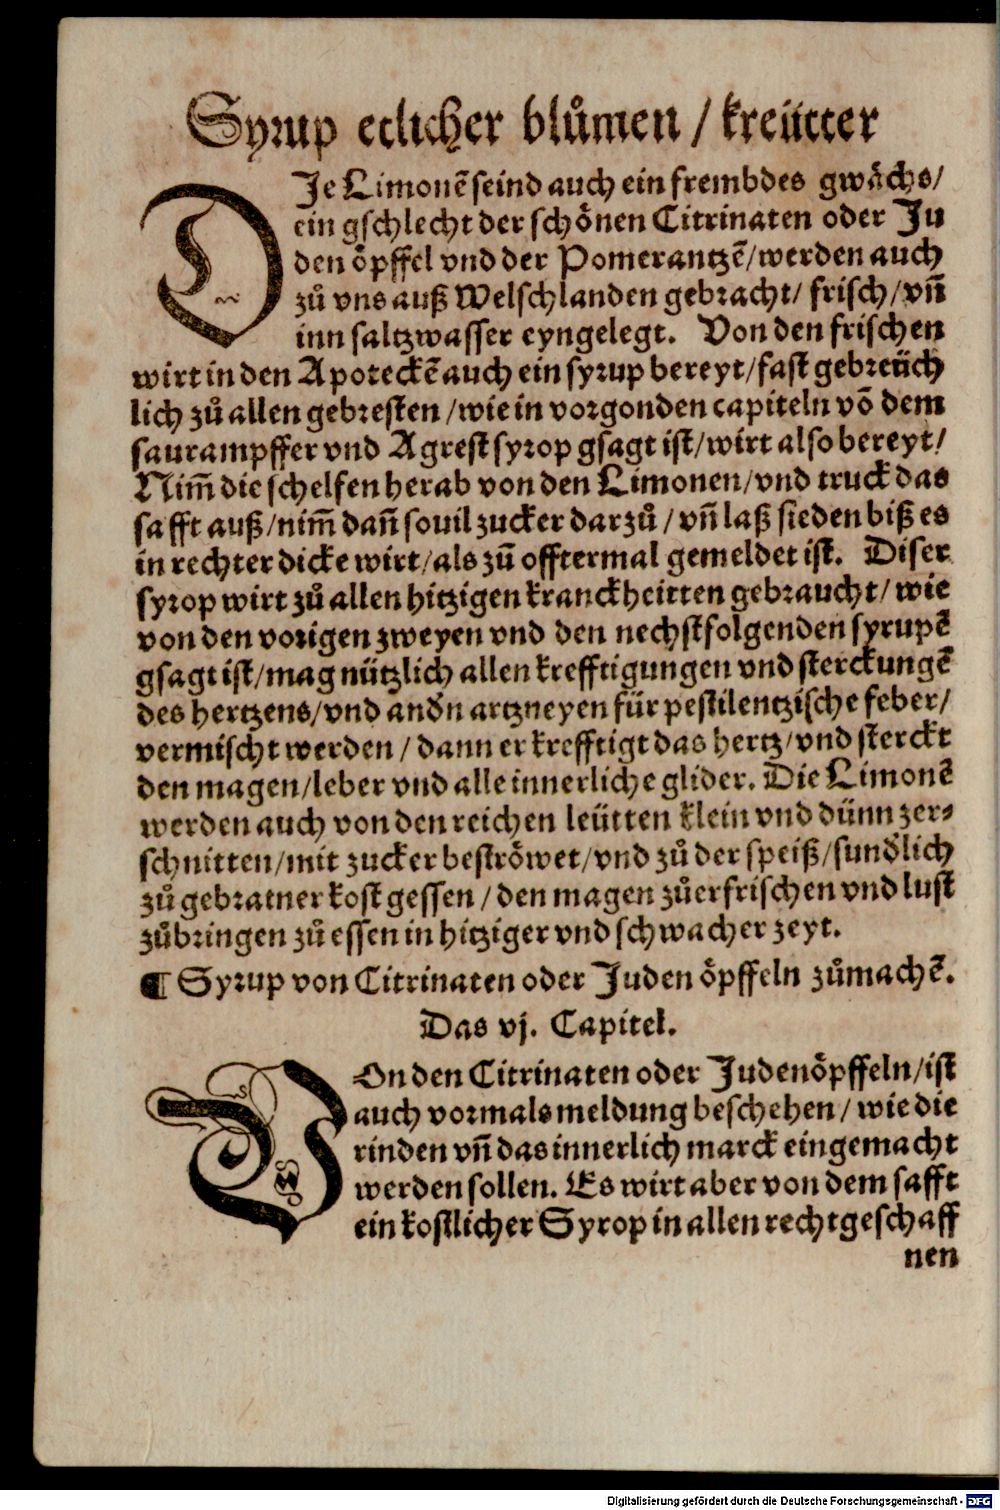 Syrup etlicher blůmen / kreütter
DIe Limonẽ seind auch ein frembdes gwächs/
ein gschlecht der schönen Citrinaten oder Ju
den öpffel vnd der Pomerantzẽ/werden auch
zů vns auß Welschlanden gebracht/ frisch/vñ
inn saltzwasser eyngelegt. Von den frischen
wirt in den Apoteckẽ auch ein syrup bereyt/fast gebreüch
lich zů allen gebresten /wie in vorgonden capiteln võ dem
saurampffer vnd Agrest syrop gsagt ist/wirt also bereyt/
Nim̃ die schelfen herab von den Limonen/vnd truck das
safft auß/nim̃ dañ souil zucker darzů / vñ laß sieden biß es
in rechter dicke wirt/als zů offtermal gemeldet ist. Diser
syrop wirt zů allen hitzigen kranckheitten gebraucht/ wie
von den vorigen zweyen vnd den nechstfolgenden syrupẽ
gsagt ist/mag nützlich allen krefftigungen vnd sterckungẽ
des hertzens/vnd andn̄ artzneyen für pestilentzische feber/
vermischt werden / dann er krefftigt das hertz/vnd sterckt
den magen/leber vnd alle innerliche glider. Die Limonẽ
werden auch von den reichen leütten klein vnd dünn zer-
schnitten/mit zucker beströwet/vnd zů der speiß/sund̄lich
zů gebratner kost gessen / den magen zůerfrischen vnd lust
zůbringen zů essen in hitziger vnd schwacher zeyt.
¶ Syrup von Citrinaten oder Juden öpffeln zůmachẽ.
Das vj. Capitel.
VOn den Citrinaten oder Judenöpffeln/ist
auch vormals meldung beschehen / wie die
rinden vñ das innerlich marck eingemacht
werden sollen. Es wirt aber von dem safft
ein kostlicher Syrop in allen rechtgeschaff
nen
Digitalisierung gefördert durch die Deutsche Forschungsgemeinschaft - DFG